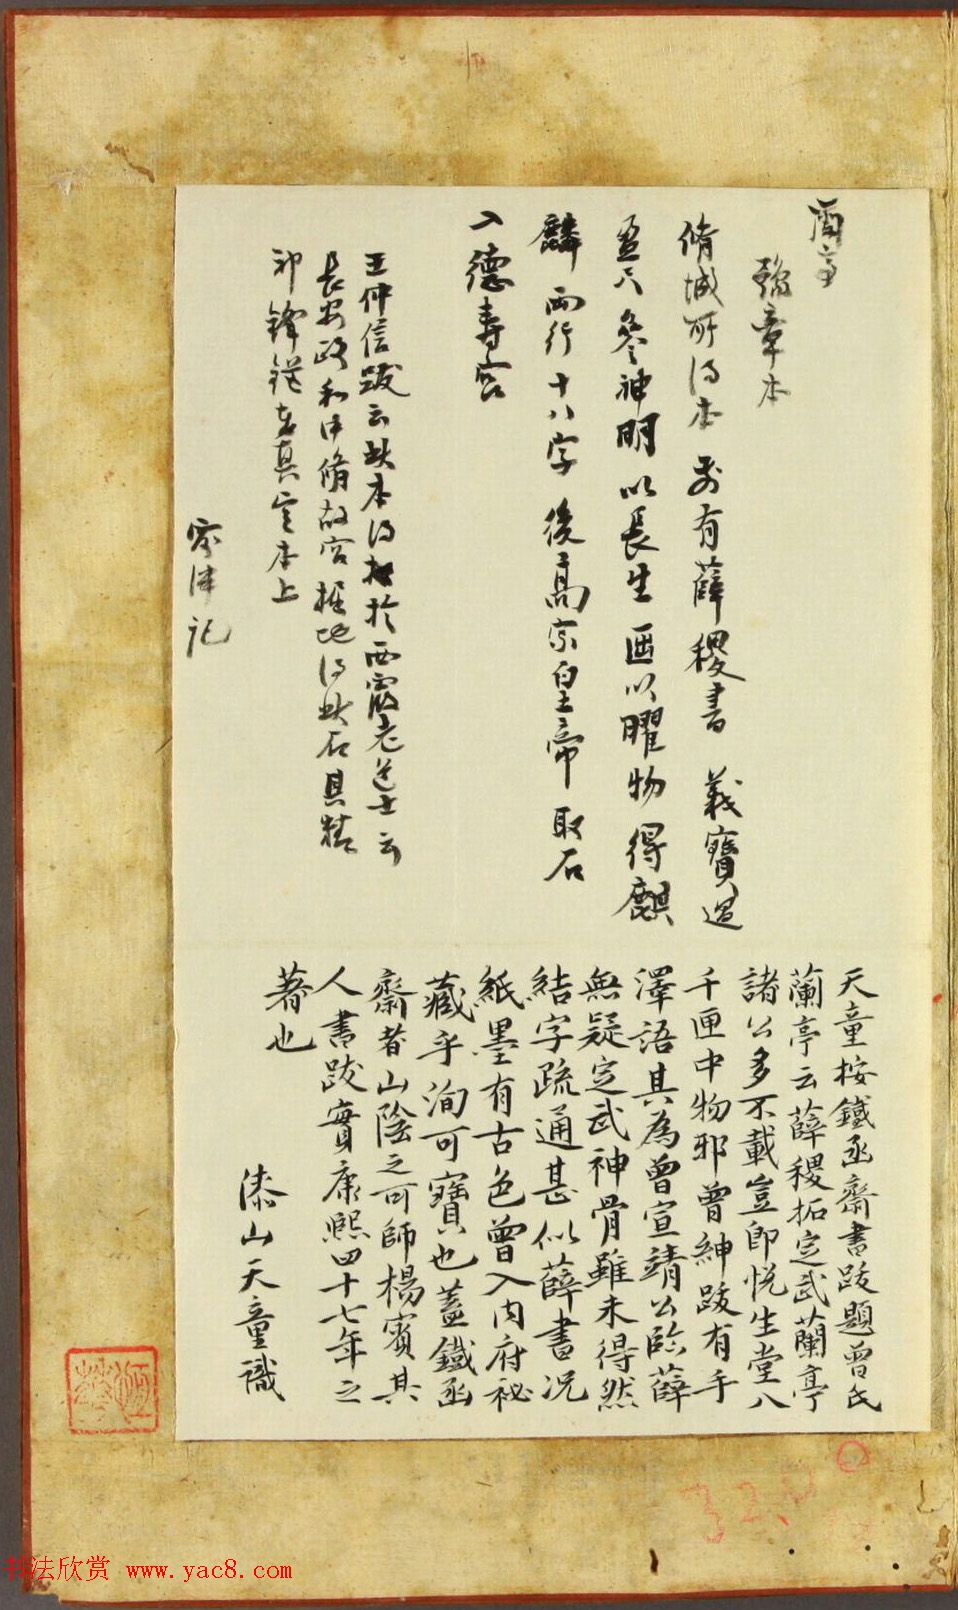 蘭亭
豫章本
脩城所得本 前有薛稷書 義寶過
盈尺參神明 以長生 匜以曜物得麒
麟 兩行十八字 後高宗皇帝 取石
入德壽宮
王仲信跋云此本得於西霞老道士云
長安政和中脩故宮掘地得此石其精
神鋒鋩在真定本上
記
天童桉鐵函齋書跋題曾氏
蘭亭云薛稷拓定武蘭亭
諸公多不載豈即悅生堂八
千匣中物邪曾紳跋有手
澤語其為曾宣靖公臨薛
無疑定武神骨雖未得然
結字疏通甚似薛書況
紙墨有古色曾入內府祕
藏乎洵可寶也蓋鐵函
齋者山陰之可師楊賓其
人書跋實康熙四十七年之
著也
漆山天童識
32.0
书法欣赏 www.yac8.com